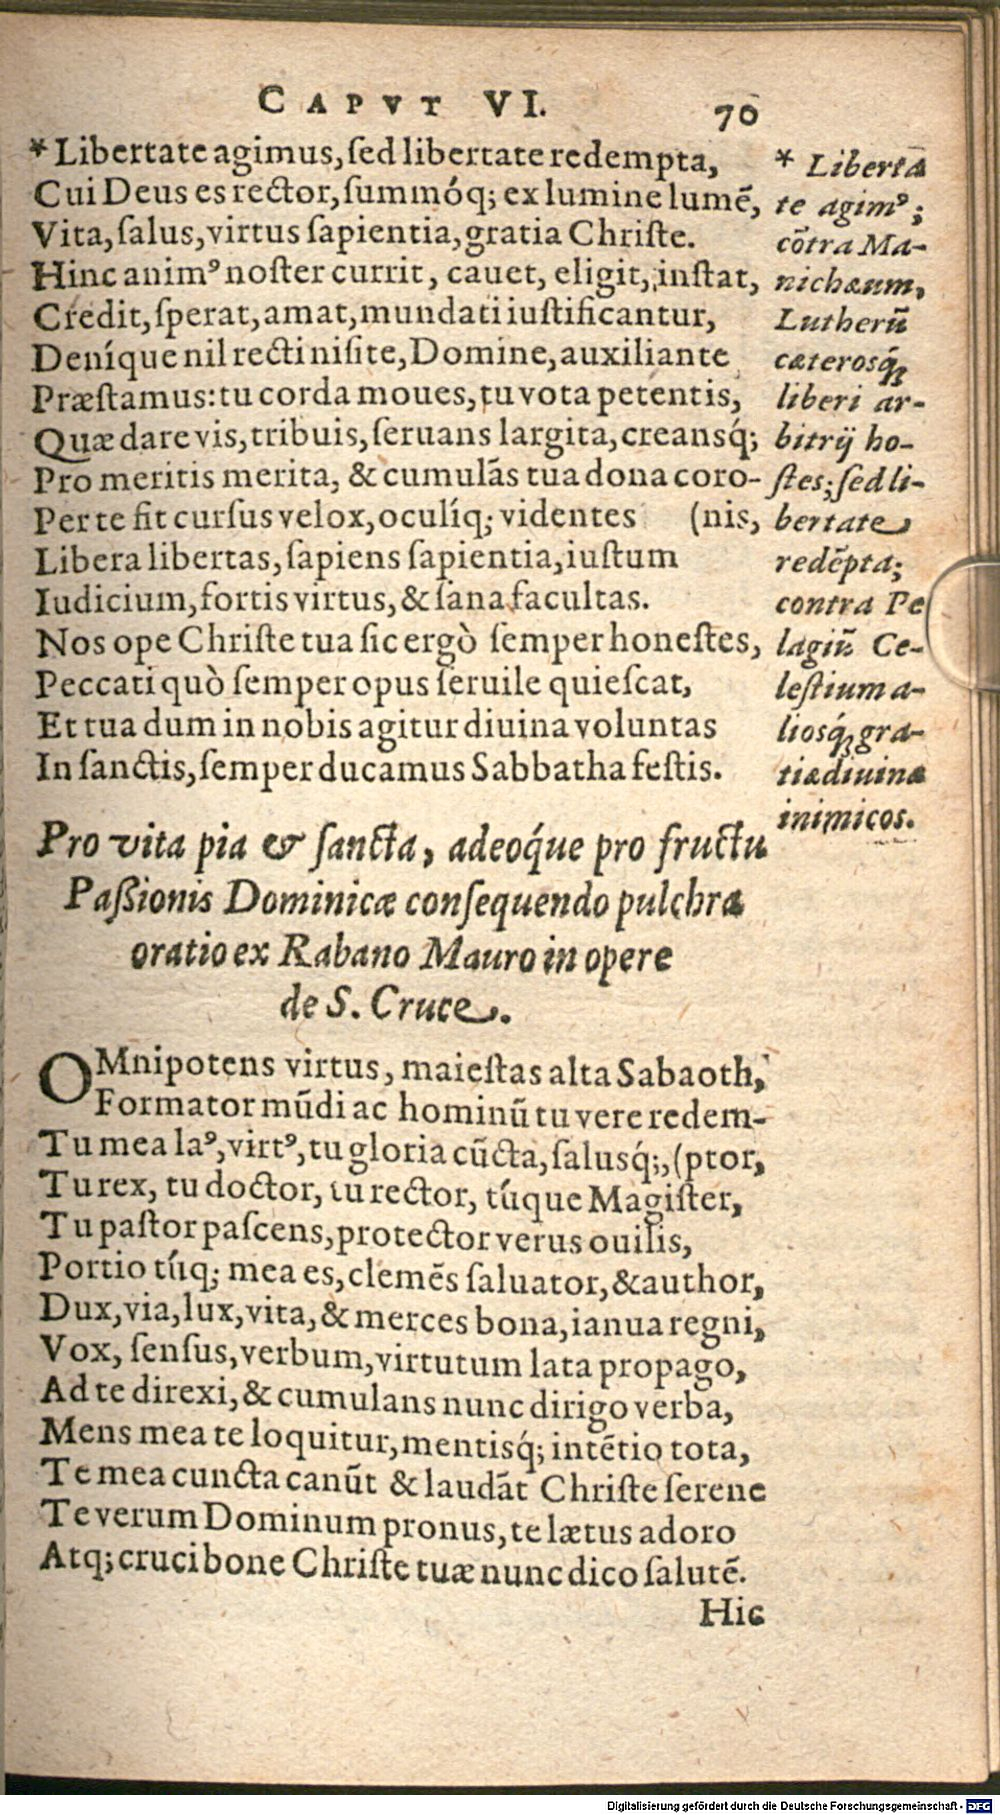 CAPVT VI. 70
* Libertate agimus, ſed libertate redempta,
Cui Deus es rector, ſummóq; ex lumine lumē,
Vita, ſalus, virtus ſapientia, gratia Chriſte.
Hinc animꝰ noſter currit, cauet, eligit, inſtat,
Credit, ſperat, amat, mundati iuſtificantur,
Deníque nil recti niſi te, Domine, auxiliante
Præſtamus: tu corda moues, tu vota petentis,
Quæ dare vis, tribuis, ſeruans largita, creansq́;
Pro meritis merita, & cumulās tua dona coro-
Per te fit curſus velox, oculíq; videntes (nis,
Libera libertas, ſapiens ſapientia, iuſtum
Iudicium, fortis virtus, & ſana facultas.
Nos ope Chriſte tua ſic ergò ſemper honeſtes,
Peccati quò ſemper opus ſeruile quieſcat,
Et tua dum in nobis agitur diuina voluntas
In ſanctis, ſemper ducamus Sabbatha feſtis.
* Liberta
te agimꝰ;
cōtra Ma-
nichæum,
Lutherū
cæterosq́;
liberi ar-
bitrij ho-
ſtes; ſed li-
bertate
redēpta;
contra Pe
lagiū Ce-
leſtium a-
liosq́; gra-
tiæ diuinæ
inimicos.
Pro vita pia & ſancta, adeóque pro fructu
Paſsionis Dominicæ conſequendo pulchra
oratio ex Rabano Mauro in opere
de S. Cruce.
OMnipotens virtus, maieſtas alta Sabaoth,
Formator mūdi ac hominū tu vere redem-
Tu mea laꝰ, virtꝰ, tu gloria cūcta, ſalusq́;, (ptor,
Tu rex, tu doctor, tu rector, túque Magiſter,
Tu paſtor paſcens, protector verus ouilis,
Portio túq; mea es, clemēs ſaluator, & author,
Dux, via, lux, vita, & merces bona, ianua regni,
Vox, ſenſus, verbum, virtutum lata propago,
Ad te direxi, & cumulans nunc dirigo verba,
Mens mea te loquitur, mentisq́; intētio tota,
Te mea cuncta canūt & laudāt Chriſte ſerene
Te verum Dominum pronus, te lætus adoro
Atq; cruci bone Chriſte tuæ nunc dico ſalutē.
Hic
Digitalisierung gefördert durch die Deutsche Forschungsgemeinschaft - DFG